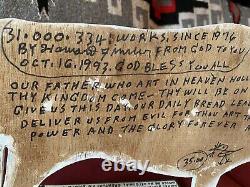 31.000.334 WORKS. SINCE 1976
BY Howard Finster FROM GOD TO YOU
OCT. 16. 1993. GOD BLESS YOU ALL
OUR FATHER WHO ART IN HEAVEN
THY KINGDOM COME- THY WILL BE ON
GIVE US THIS DAY OUR DAILY BREAD LEA
DELIVER US FROM EVIL FOR THOU ART T
POWER AND THE GLORY FOREVER